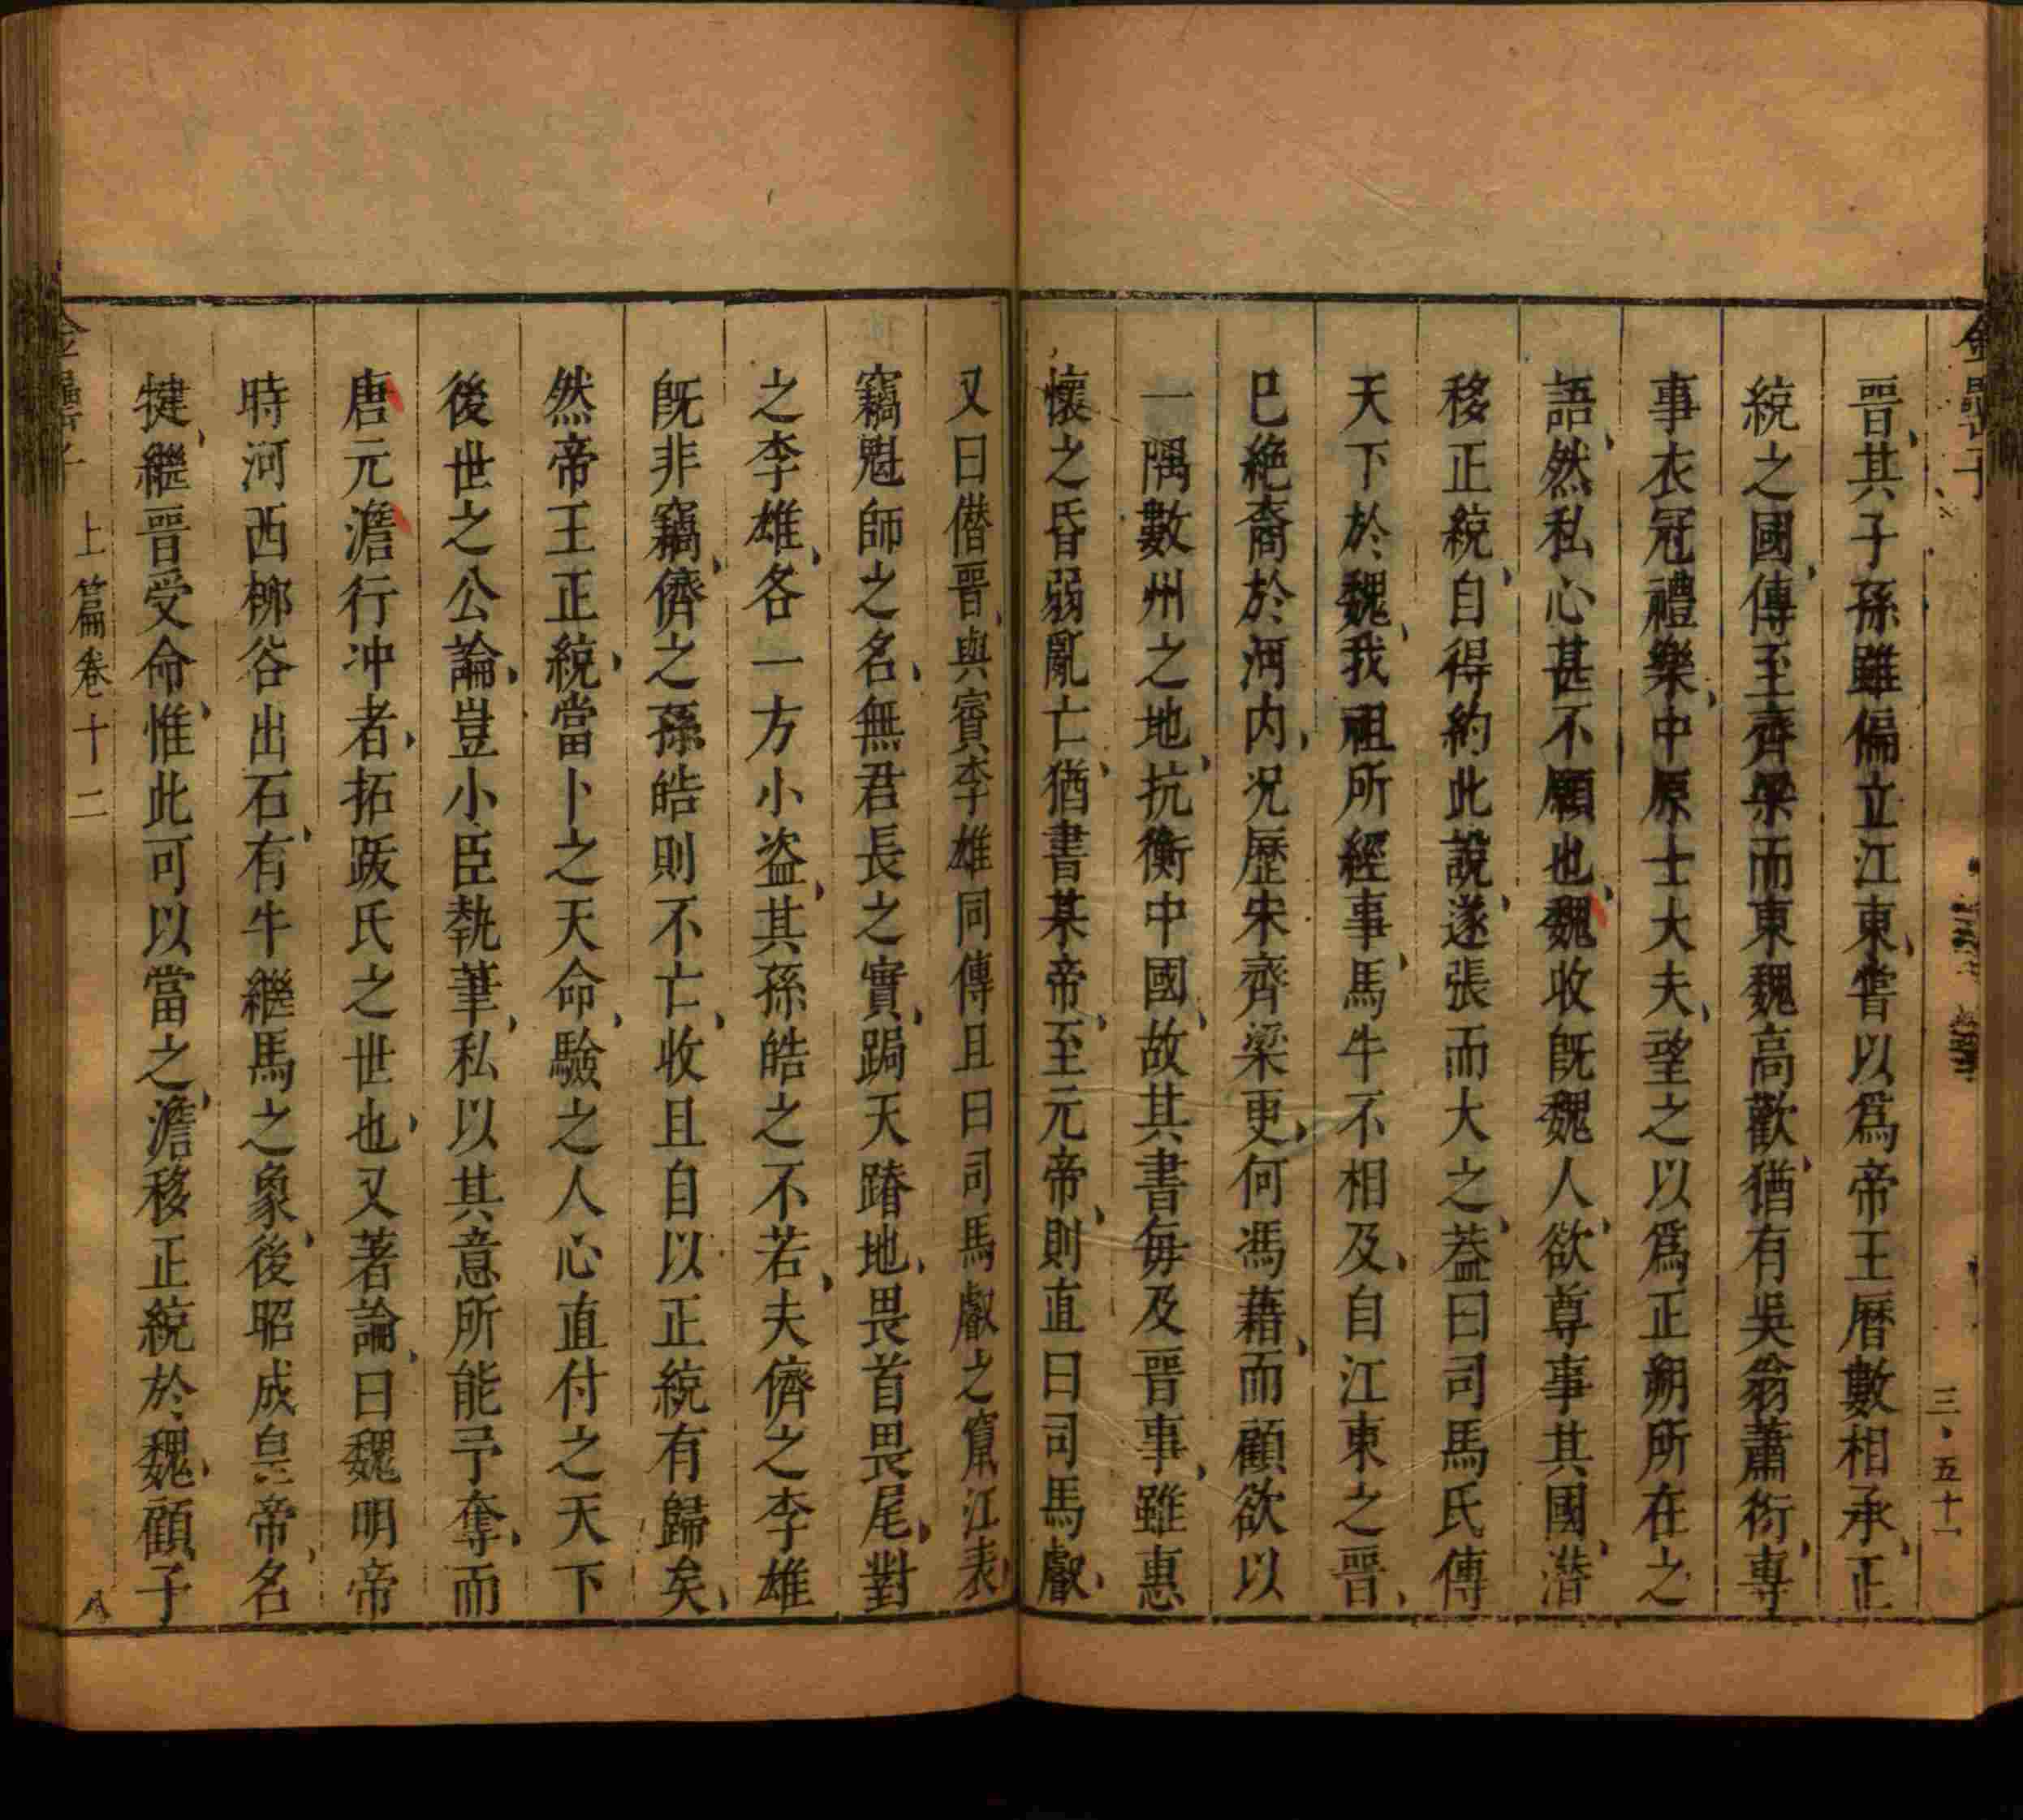 晋其子孫雖偏立江東嘗以爲帝王曆數相承正
統之國傳至齊梁而東魏高歡猶有吳翁蕭衍專
事衣冠禮樂中原士大夫望之以爲正朔所在之
語然私心甚不願也魏收旣魏人欲尊事其國潛
移正統自得約此說遂張而大之葢曰司馬氏傳
天下於魏我祖所經事馬牛不相及自江東之晋
巳絶裔於河内况歷宋齊梁更何馮藉而顧欲以
一隅數州之地抗衡中國故其書每及晋事雖惠
懷之昏弱亂亡猶書某帝至元帝則直曰司馬叡
又曰僣晋與賨李雄同傳且曰司馬叡之竄江表
竊魁師之名無君長之實跼天蹐地畏首畏尾對
之李雄各一方小盗其孫皓之不若夫儕之李雄
旣非竊儕之孫皓則不亡收且自以正統有歸矣
然帝王正統當卜之天命驗之人心直付之天下
後世之公論豈小臣執筆私以其意所能予奪而
唐元澹行冲者拓跋氏之世也又著論曰魏明帝
時河西栁谷出石有牛繼馬之象後昭成皇帝名
犍繼晋受命惟此可以當之澹移正統於魏顧子
上篇卷十二
八